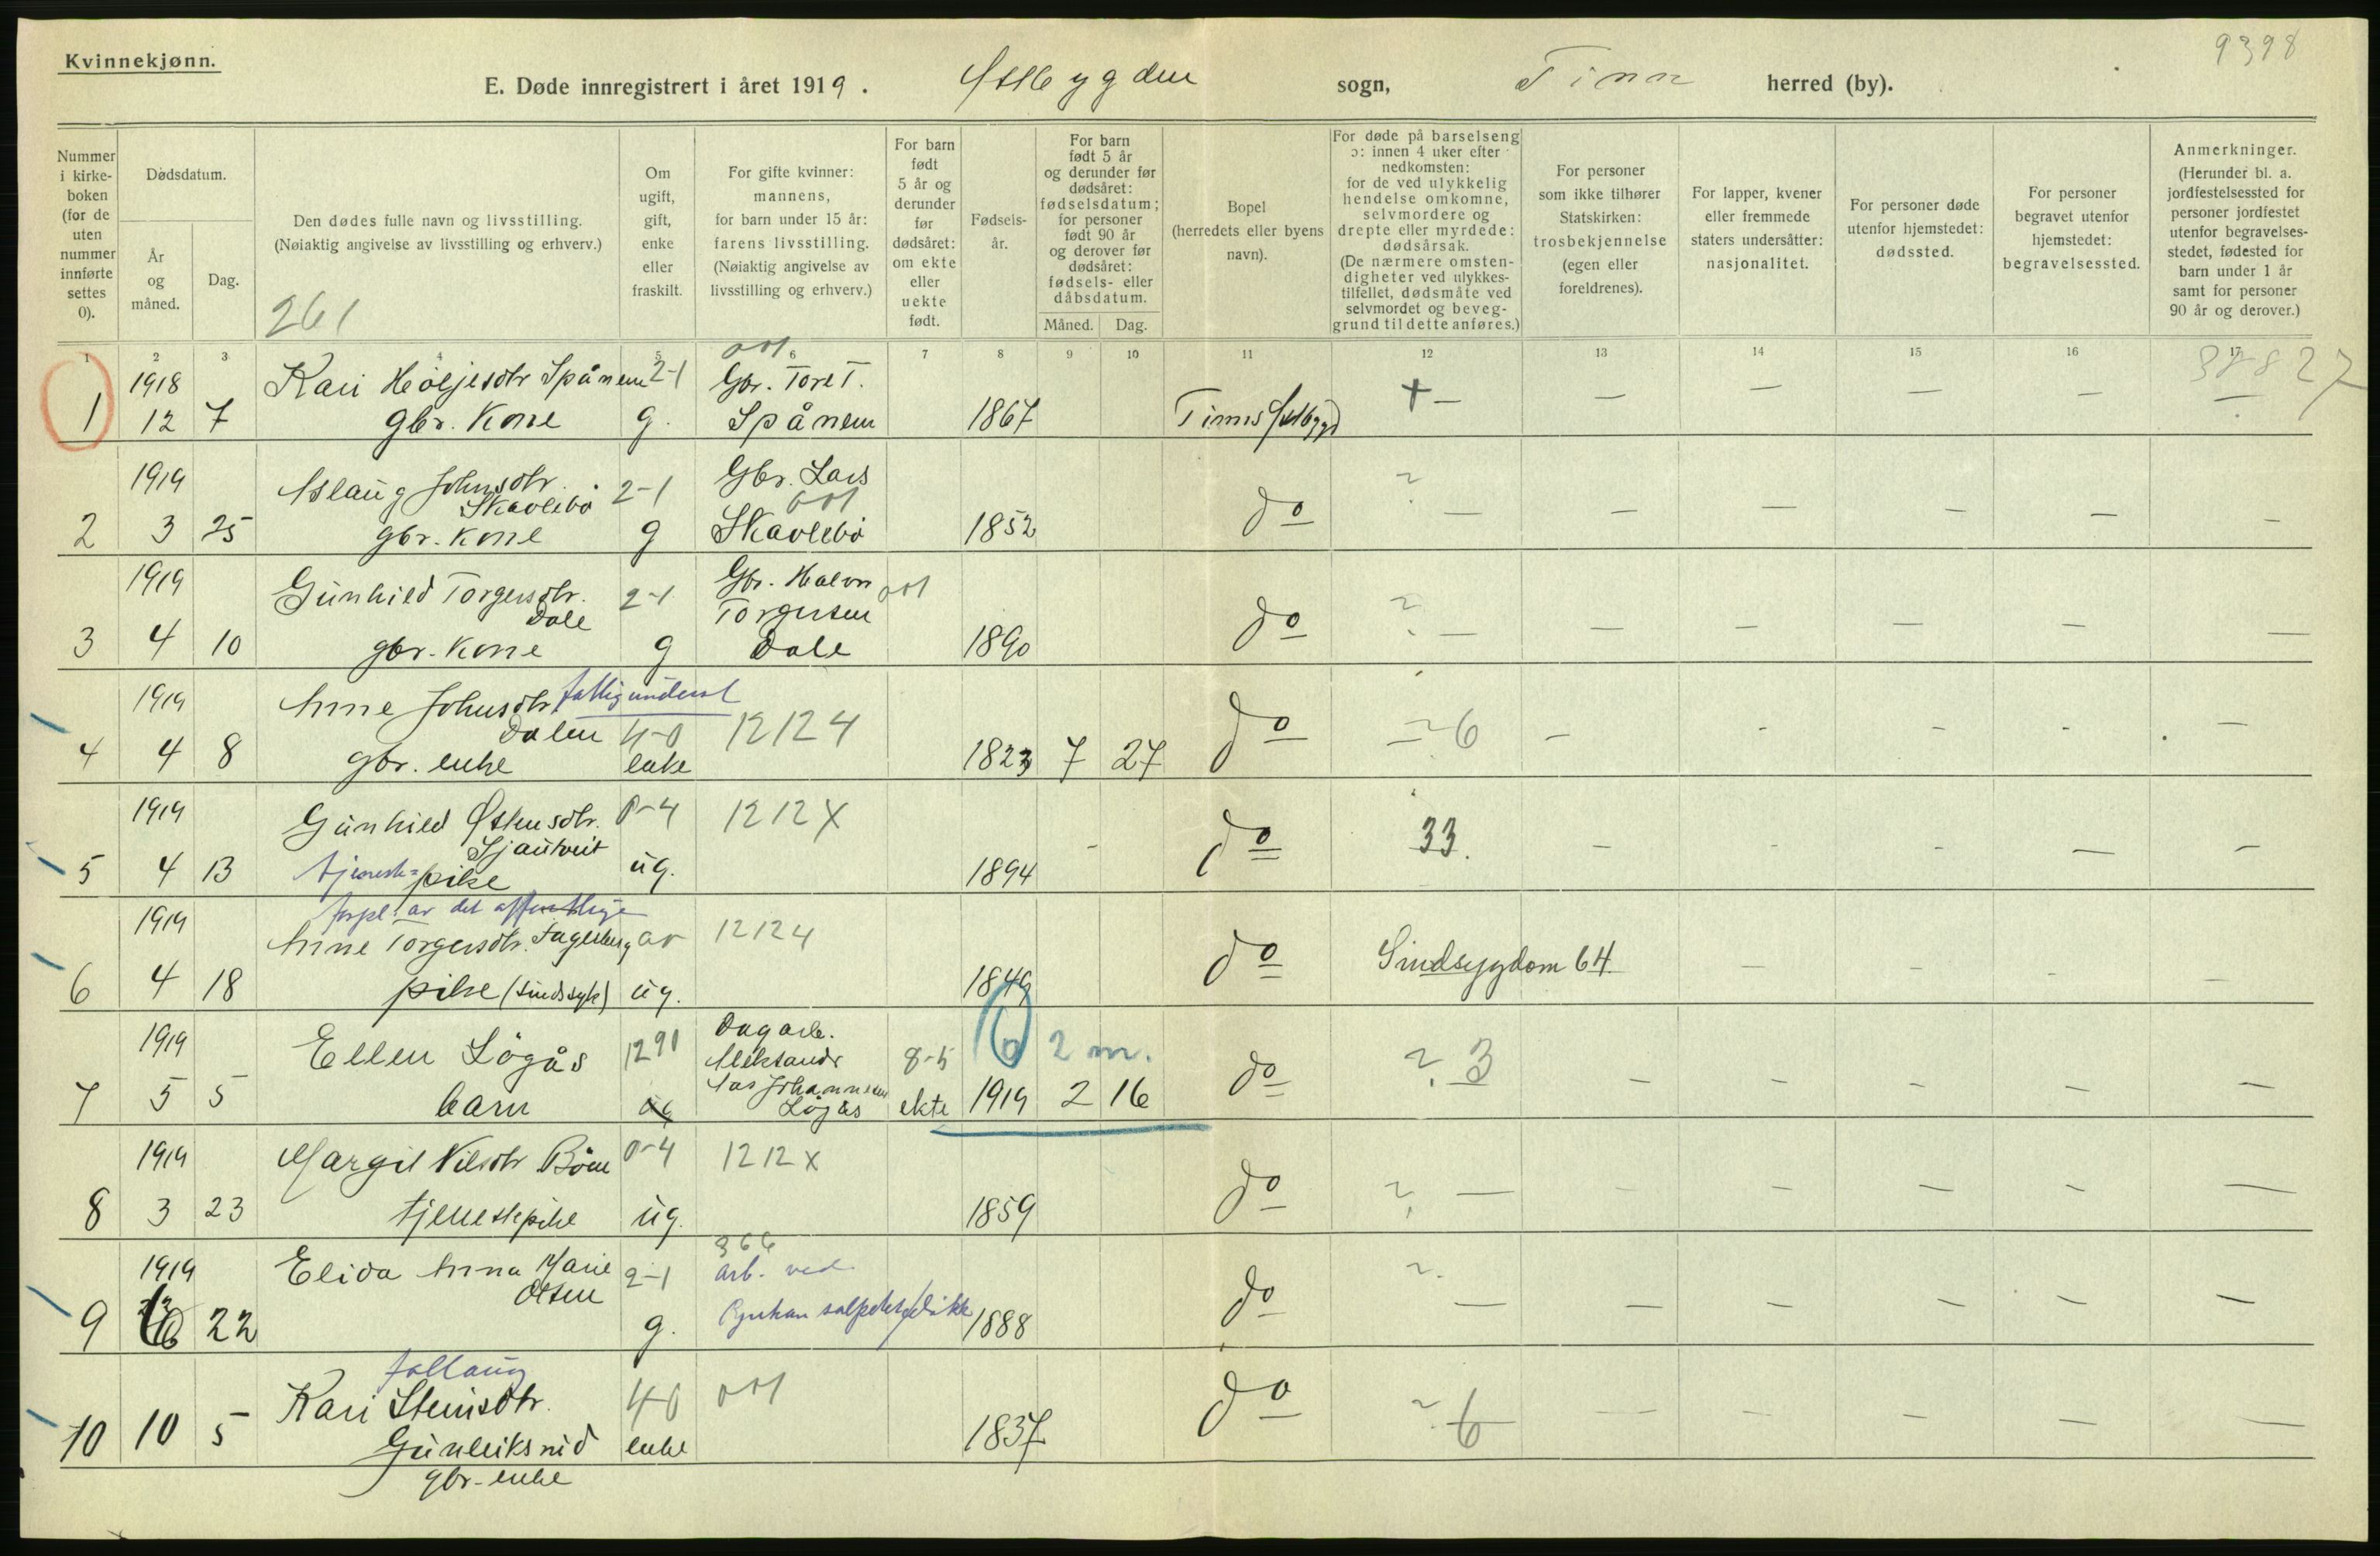 Kvinnekjønn.
9398
E. Døde innregistrert i året 1919. Østbygden sogn, Tinn herred (by).
Nummer i kirkeboken (for de uten nummer innførte settes 0).
Dødsdatum.
År og måned.
Dag.
Den dødes fulle navn og livsstilling.
(Nøiaktig angivelse av livsstilling og erhverv.)
261
Om ugift, gift, enke eller fraskilt.
For gifte kvinner: mannens, for barn under 15 år: farens livsstilling.
(Nøiaktig angivelse av livsstilling og erhverv.)
For barn født 5 år og derunder før dødsåret: om ekte eller uekte født.
Fødselsår.
For barn født 5 år og derunder før dødsåret: fødselsdatum; for personer født 90 år og derover før dødsåret: fødsels- eller dåbsdatum.
Måned. Dag.
Bopel (herredets eller byens navn).
For døde på barselseng ɔ: innen 4 uker efter nedkomsten: for de ved ulykkelig hendelse omkomne, selvmordere og drepte eller myrdede: dødsårsak.
(De nærmere omstendigheter ved ulykkestilfellet, dødsmåte ved selvmordet og beveggrund til dette anføres.)
For personer som ikke tilhører Statskirken: trosbekjennelse (egen eller foreldrenes).
For lapper, kvener eller fremmede staters undersåtter: nasjonalitet.
For personer døde utenfor hjemstedet: dødssted.
For personer begravet utenfor hjemstedet: begravelsessted.
Anmerkninger.
(Herunder bl. a. jordfestelsessted for personer jordfestet utenfor begravelsesstedet, fødested for barn under 1 år samt for personer 90 år og derover.)
1 2 3 4 5 6 7 8 9 10 11 12 13 14 15 16 17
1918 Kari Høljesdtr Spånem 2-1 Gbr. Tore T. + — — — — — —
1 12 7 gbr. Kone g. Spånem 1867 Tinns Østbygd
1919 Aslaug Johnsdtr. 2-1 Gbr. Lars ?
Skavlebø
2 3 25 gbr. Kone g Skavlebø 1852 do — — — — — —
1919 Gunhild Torgersdtr. 2-1 Gbr. Halvor ?
Dale Torgersen
3 4 10 gbr. Kone g Dale 1890 do — — — — — —
1919 Anne Johnsdtr. fattigunderst
Dalen 4-0 12124 6
4 4 8 gbr. enke enke 1823 7 27 do — — — — —
1919 Gunhild Østensdtr. 0-4 1212X 33.
5 4 13 tjeneste=pike ug. 1894 do — — — — —
forpl. av det offentlige
1919 Anne Torgersdtr. Fagerberg 12124
6 4 18 pike (sindssyk) ug. 1849 do Sindsygdom 64. — — — —
1919 Ellen Løgås 1291 Dagarb. 8-5 6 2 m. ? 3
Johannessen
7 5 5 barn ug Løgås ekte 1919 2 16 do — — — — —
1919 Margit Nilsdtr Bøen 0-4 1212X ?
8 3 23 tjenestepike ug. 1859 do — — — — — —
1919 Elida Anna Marie 2-1 366 arb. ved ?
Olsen
9 22 g. Rjukan salpeterfabrikk 1888 do — — — — — —
Kari Steinsdtr. 4-0 ? 6
10 10 5 Gunleiksrud enke 1837 do — — — — —
gbr-enke